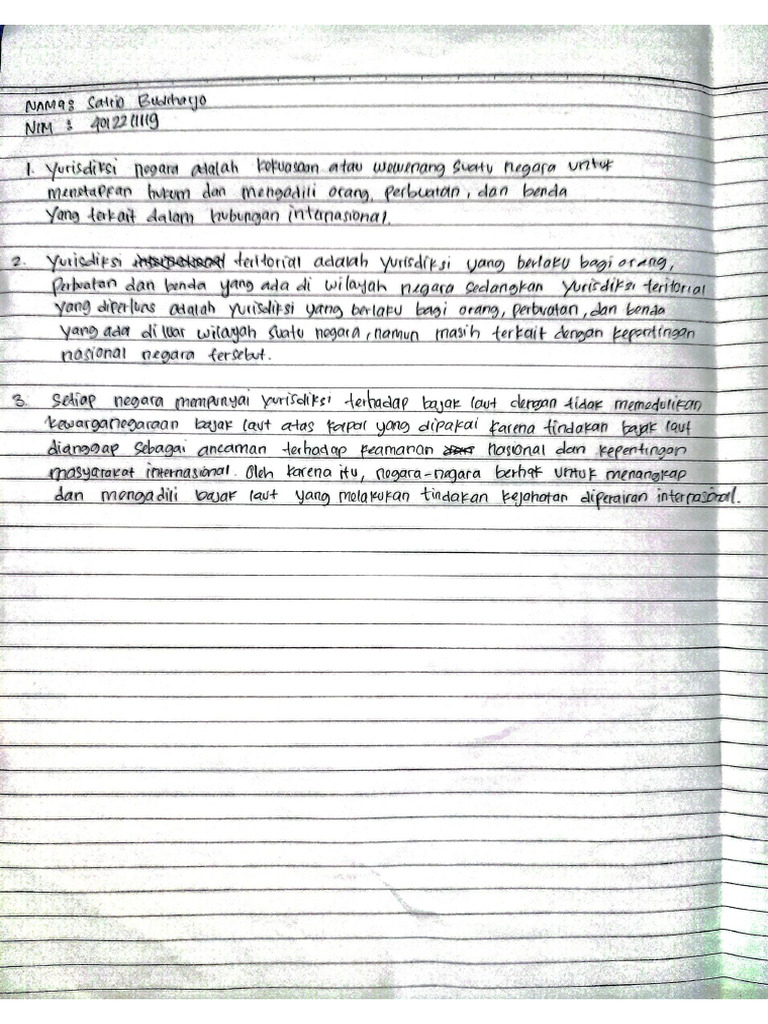 NAMA : Satrio Bukithayo
NIM : 4012211119
1. Yurisdiksi negara adalah kekuasaan atau wewenang suatu negara untuk
menetapkan hukum dan mengadili orang, perbuatan, dan benda
yang terkait dalam hubungan internasional.
2. Yurisdiksi teritorial adalah yurisdiksi yang berlaku bagi orang,
perbuatan dan benda yang ada di wilayah negara sedangkan yurisdiksi teritorial
yang diperluas adalah yurisdiksi yang berlaku bagi orang, perbuatan, dan benda
yang ada di luar wilayah suatu negara, namun masih terkait dengan kepentingan
nasional negara tersebut.
3. Setiap negara mempunyai yurisdiksi terhadap bajak laut dengan tidak memedulikan
kewarganegaraan bajak laut atas kapal yang dipakai karena tindakan bajak laut
dianggap sebagai ancaman terhadap keamanan nasional dan kepentingan
masyarakat internasional. Oleh karena itu, negara-negara berhak untuk menangkap
dan mengadili bajak laut yang melakukan tindakan kejahatan diperairan internasional.